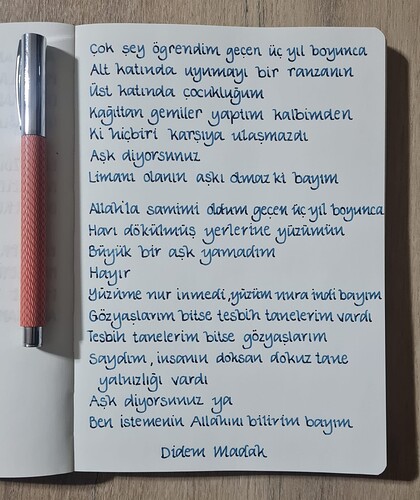 Çok şey öğrendim geçen üç yıl boyunca
Alt katında uyumayı bir ranzanın
Üst katında çocukluğum
Kağıttan gemiler yaptım kalbimden
Ki hiçbiri karşıya ulaşmazdı
Aşk diyorsunuz
Limanı olanın aşkı olmaz ki bayım
Allah'la samimi oldum geçen üç yıl boyunca
Havı dökülmüş yerlerine yüzümün
Büyük bir aşk yamadım
Hayır
Yüzüme nur inmedi, yüzüm nura indi bayım
Gözyaşlarım bitse tesbih tanelerim vardı
Tesbih tanelerim bitse gözyaşlarım
Saydım, insanın doksan dokuz tane
yalnızlığı vardı
Aşk diyorsunuz ya
Ben istemenin Allahını bilirim bayım
Didem Madak